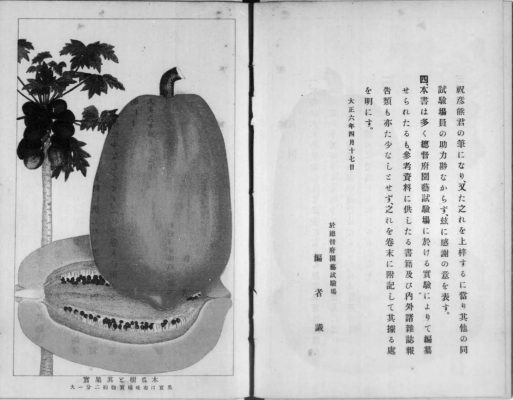 三祝彦熊君の筆になり、又た之れを上梓するに當り其他の同
試驗場員の助力尠なからず、玆に感謝の意を表す。
四、本書は多く總督府園藝試驗場に於ける實驗によりて編纂
せられたるも、參考資料に供したる書籍及び內外諸雜誌報
告類も亦た少なしとせず、之れを卷末に附記して其據る處
を明にす。
大正六年四月十七日
於總督府園藝試驗場
編者識
木瓜樹と其果實